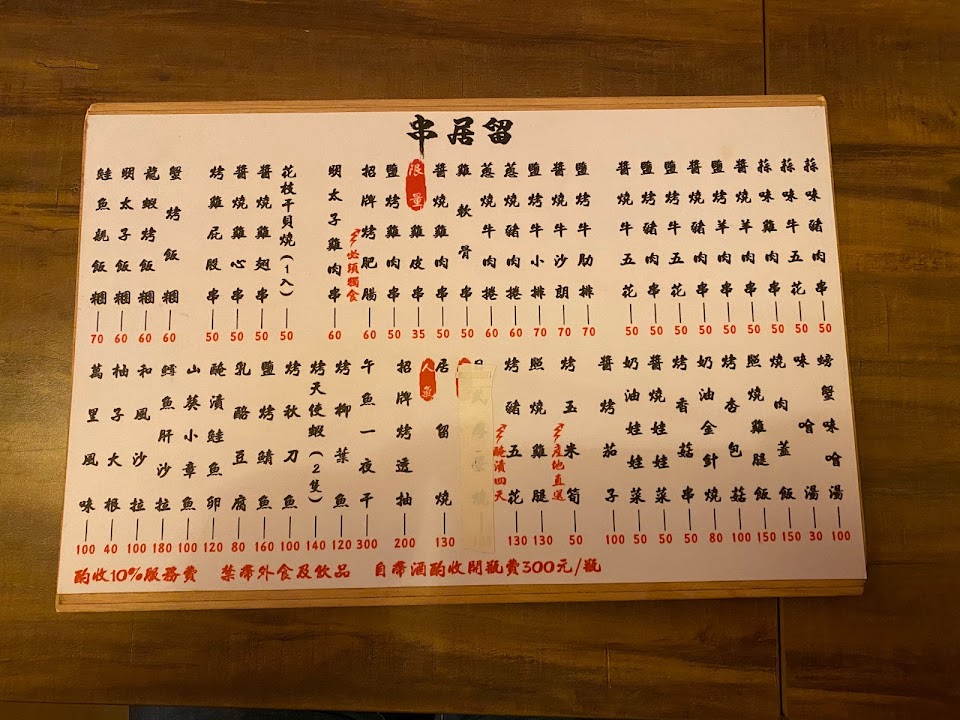 串居留
蒜味豬肉串 50
蒜味牛五花 50
蒜味雞肉串 50
醬燒羊肉串 50
鹽烤羊肉串 50
醬燒豬肉串 50
鹽烤牛五花 50
鹽烤豬肉串 50
醬燒牛五花 50
鹽烤牛肋排 70
醬燒牛沙朗 70
鹽烤牛小排 70
蔥燒豬肉捲 60
蔥燒牛肉捲 60
雞軟骨串 50
醬燒雞肉串 50
限量 雞皮串 35
鹽烤雞肉串 50
招牌烤肥腸 60
必須獨食
明太子雞肉串 60
花枝干貝燒(1入) 50
醬燒雞翅串 50
醬燒雞心串 50
烤雞屁股串 50
蟹烤飯糰 60
龍蝦烤飯糰 60
明太子飯糰 60
鮭魚親飯糰 70
螃蟹味噌湯 100
味噌湯 30
燒肉蓋飯 150
照燒雞腿飯 150
烤杏包菇 100
奶油金針燒 80
烤香菇串 50
醬燒娃娃菜 50
奶油娃娃菜 50
醬烤茄子 100
烤玉米筍 50
產地直送
照燒雞腿 130
烤豬五花 130
醃漬四天
人氣 居留燒 130
招牌烤透抽 200
午魚一夜干 300
烤柳葉魚 120
烤天使蝦(2隻) 140
烤秋刀魚 100
鹽烤鯖魚 160
乳酪豆腐 80
醃漬鮭魚卵 120
山葵小章魚 100
鱈魚肝沙拉 180
和風沙拉 100
柚子大根 40
萬里風味 100
酌收10%服務費 禁帶外食及飲品 自帶酒酌收開瓶費300元/瓶